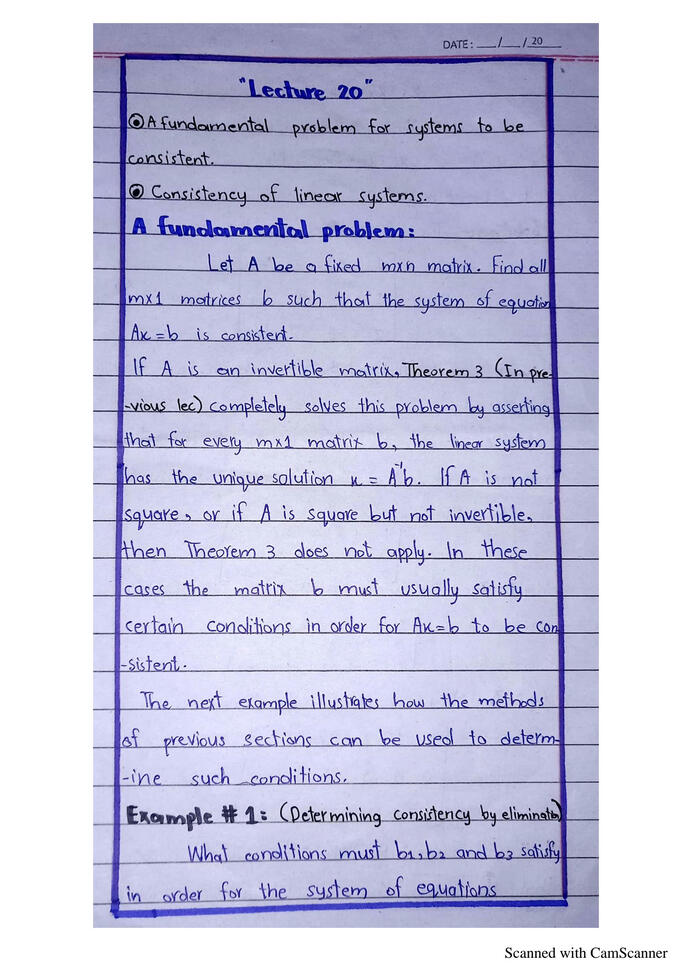 DATE: __/__/20__
"Lecture 20"
A fundamental problem for systems to be
consistent.
Consistency of linear systems.
A fundamental problem:
Let A be a fixed m×n matrix. Find all
m×1 matrices b such that the system of equation
Ax=b is consistent.
If A is an invertible matrix, Theorem 3 (In pre-
-vious lec) completely solves this problem by asserting
that for every m×1 matrix b, the linear system
has the unique solution x = A⁻¹b. If A is not
square, or if A is square but not invertible,
then Theorem 3 does not apply. In these
cases the matrix b must usually satisfy
certain conditions in order for Ax=b to be con
-sistent.
The next example illustrates how the methods
of previous sections can be used to determ-
-ine such conditions.
Example # 1: (Determining consistency by elimination)
What conditions must b₁, b₂ and b₃ satisfy
in order for the system of equations
Scanned with CamScanner